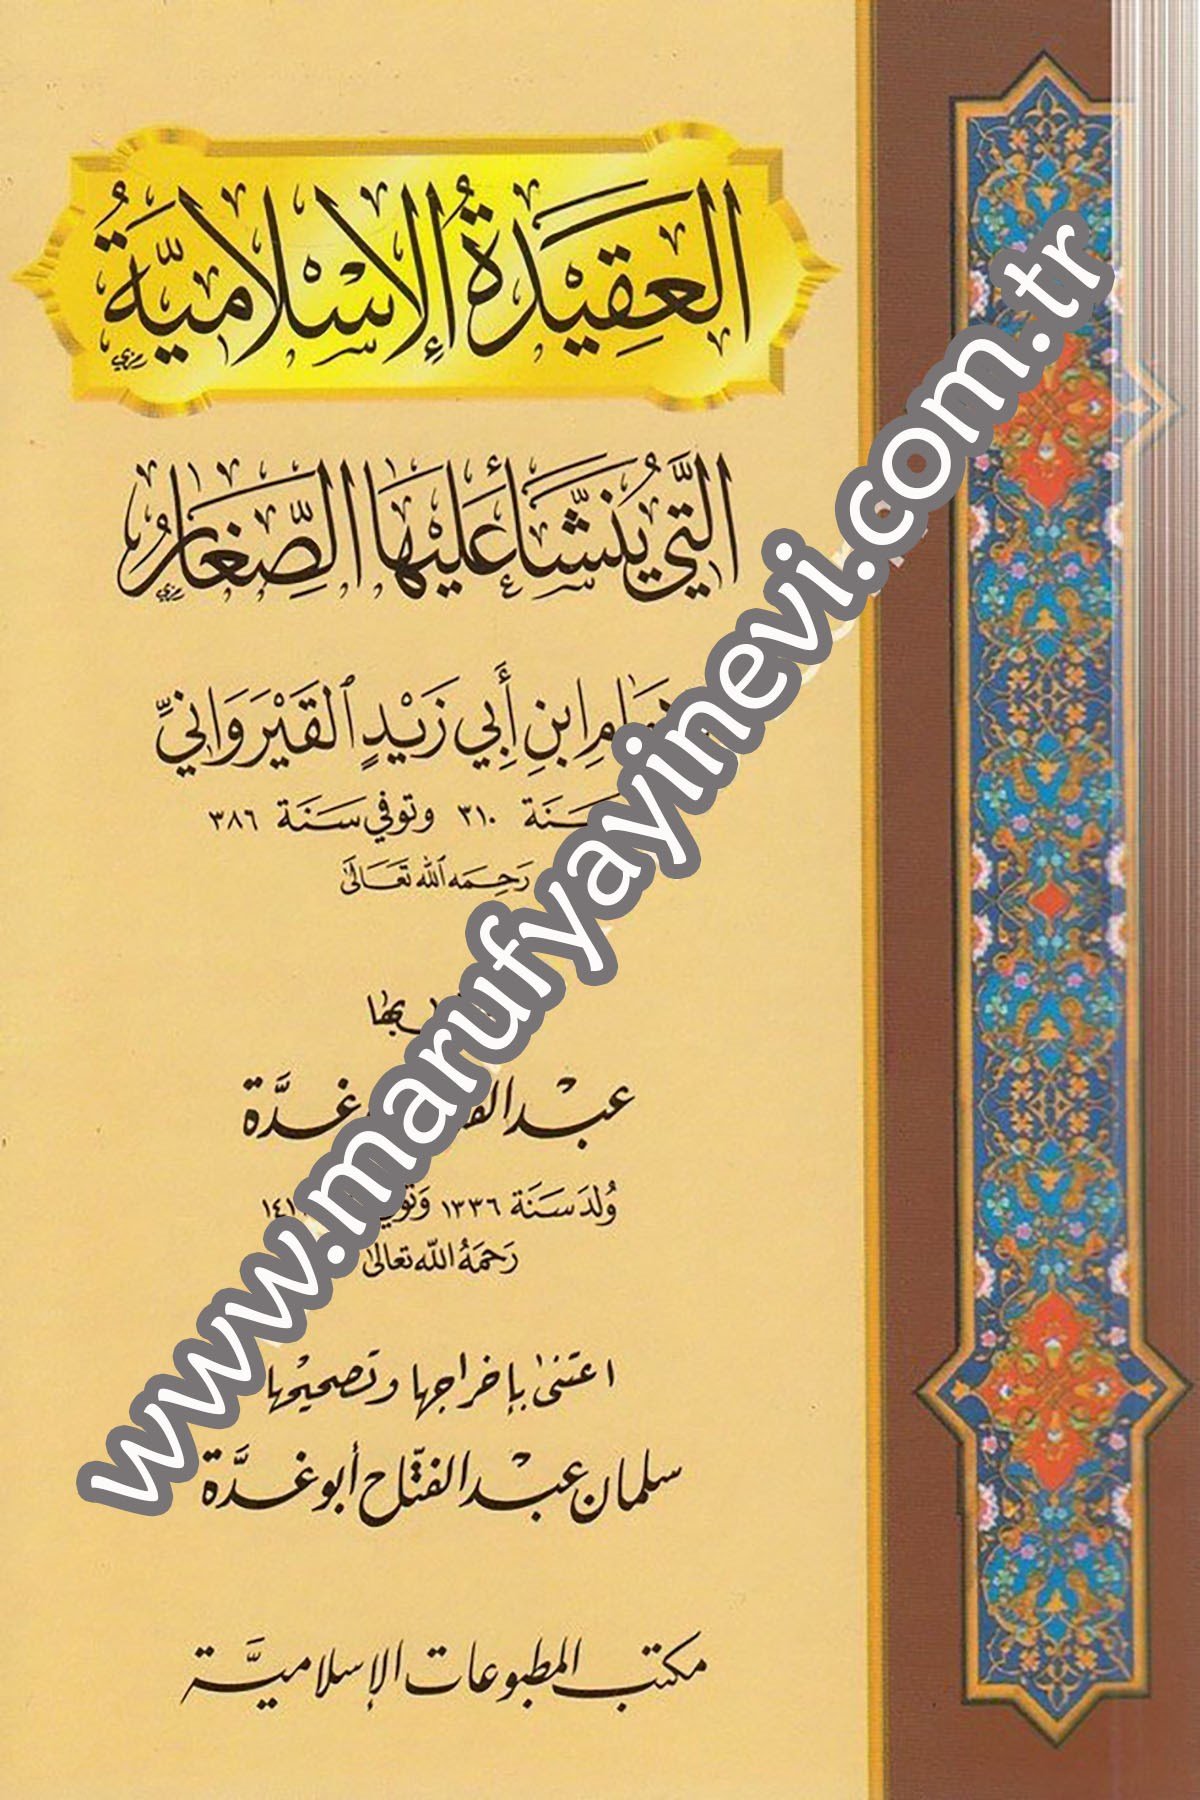 العَقِيْدَةُ الإِسْلَامِيَّةُ
التَّي يُنَشَّأُ عَلَيْهَا الصِّغَارُ
ابنِ أَبِي زَيْدٍ القَيْرَوَانيِّ
٣١٠ وتوفي سَنَة ٣٨٦
رَحِمَه الله تَعَالَى
بها
عبْد غدَّة
وُلدَ سَنَة ١٣٣٦
رَحمَهُ الله تعالى
اعتنى بإخراجها وتصحيحها
سلمان عبْد الفتّاح أبو غدَّة
مكتب المطبوعات الإسلاميَّة
www.marufyayinevi.com.tr